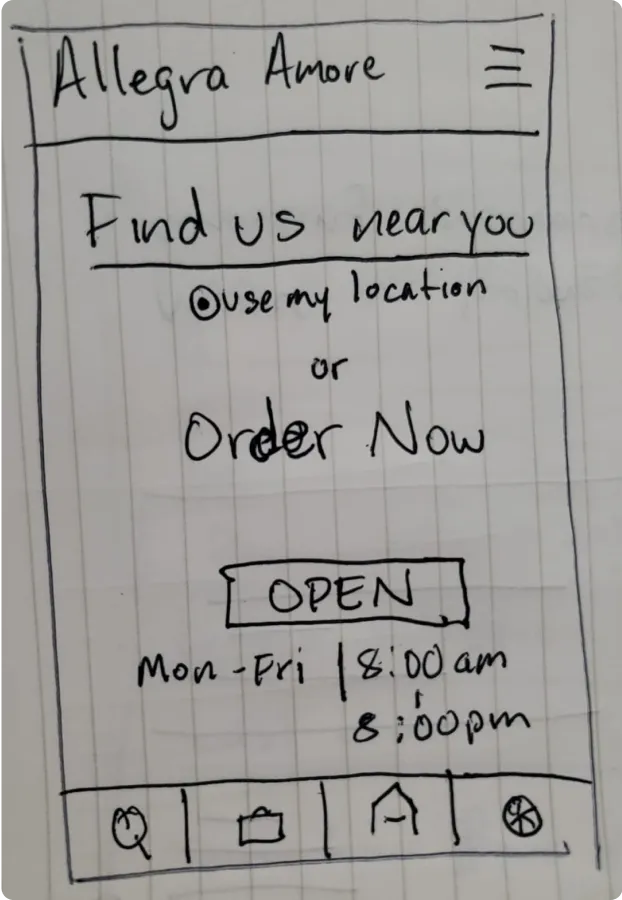 Allegra Amore
Find us near you
use my location
or
Order Now
OPEN
Mon-Fri | 8:00 am
8:00pm